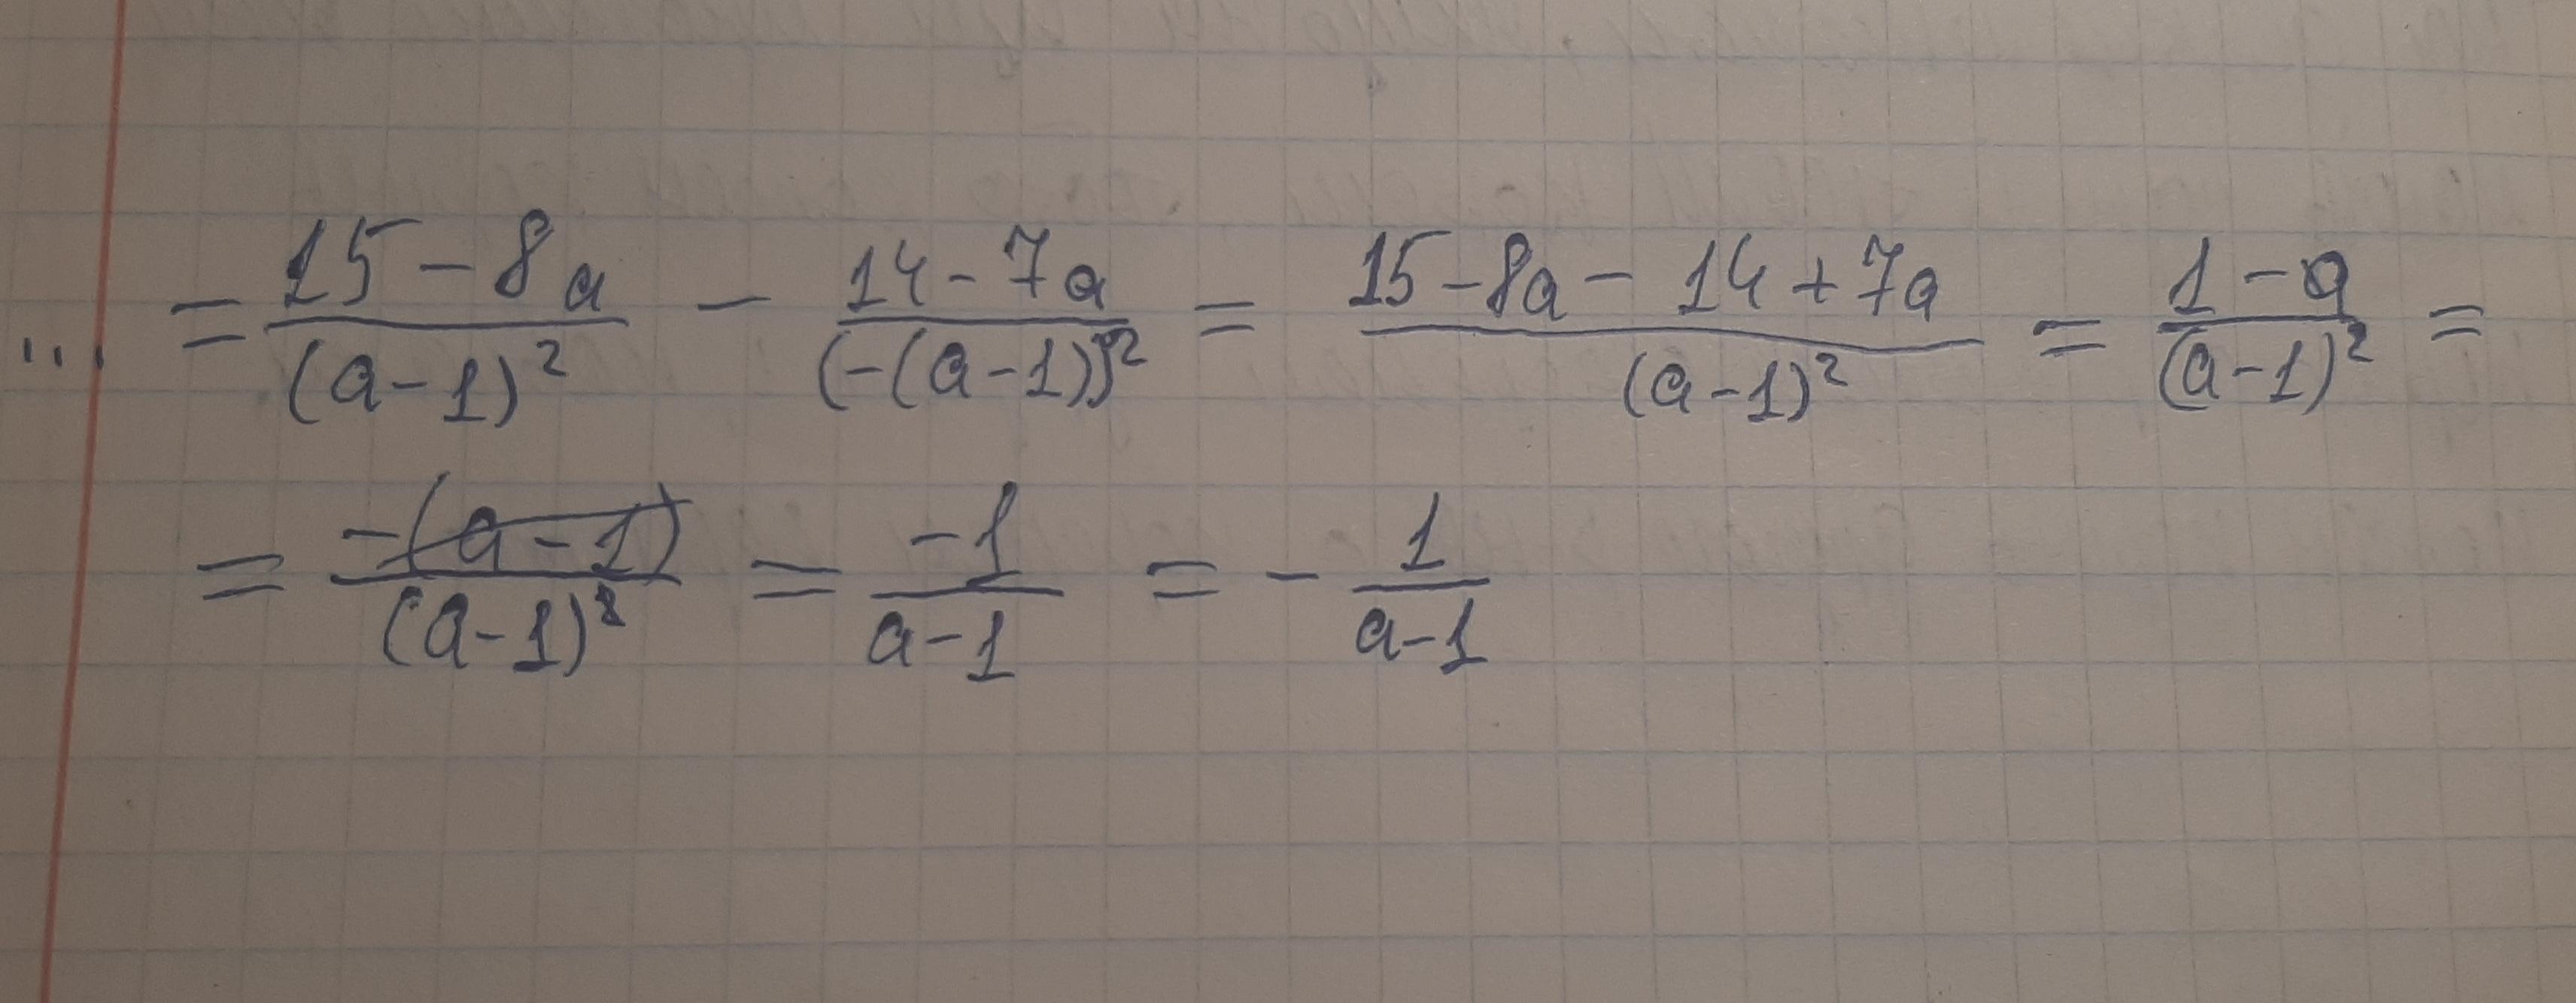 ... = \frac{15-8a}{(a-1)^2} - \frac{14-7a}{(-(a-1))^2} = \frac{15-8a-14+7a}{(a-1)^2} = \frac{1-a}{(a-1)^2} =
= \frac{-(a-1)}{(a-1)^2} = \frac{-1}{a-1} = -\frac{1}{a-1}